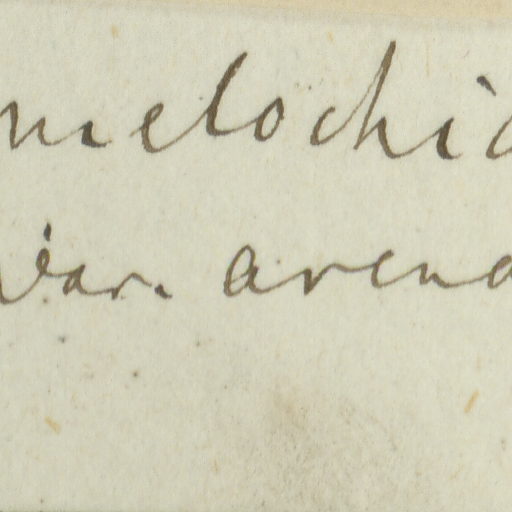 melochia
var. arena